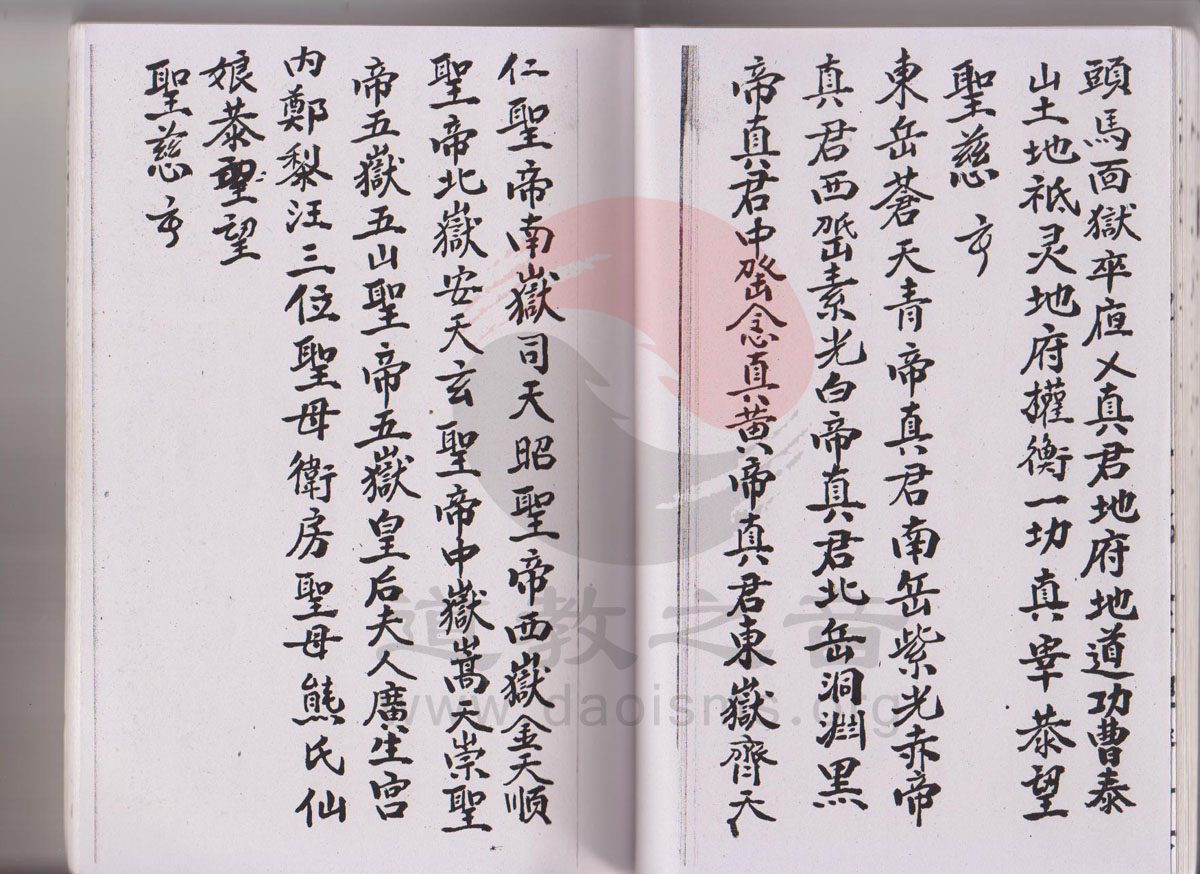 頭馬面獄卒㢆乂真君地府地道功曹泰
山土地祗灵地府權衡一切真宰恭望
聖慈
東岳蒼天青帝真君南岳紫光赤帝
真君西岳素光白帝真君北岳洞淵黑
帝真君中岳念真黄帝真君東嶽齊天
仁聖帝南嶽司天昭聖帝西嶽金天順
聖帝北嶽安天玄聖帝中嶽嵩天崇聖
帝五嶽五山聖帝五嶽皇后夫人廣生宫
内鄭黎汪三位聖母衛房聖母熊氏仙
娘恭望
聖慈
道教之音
www.daoisms.org